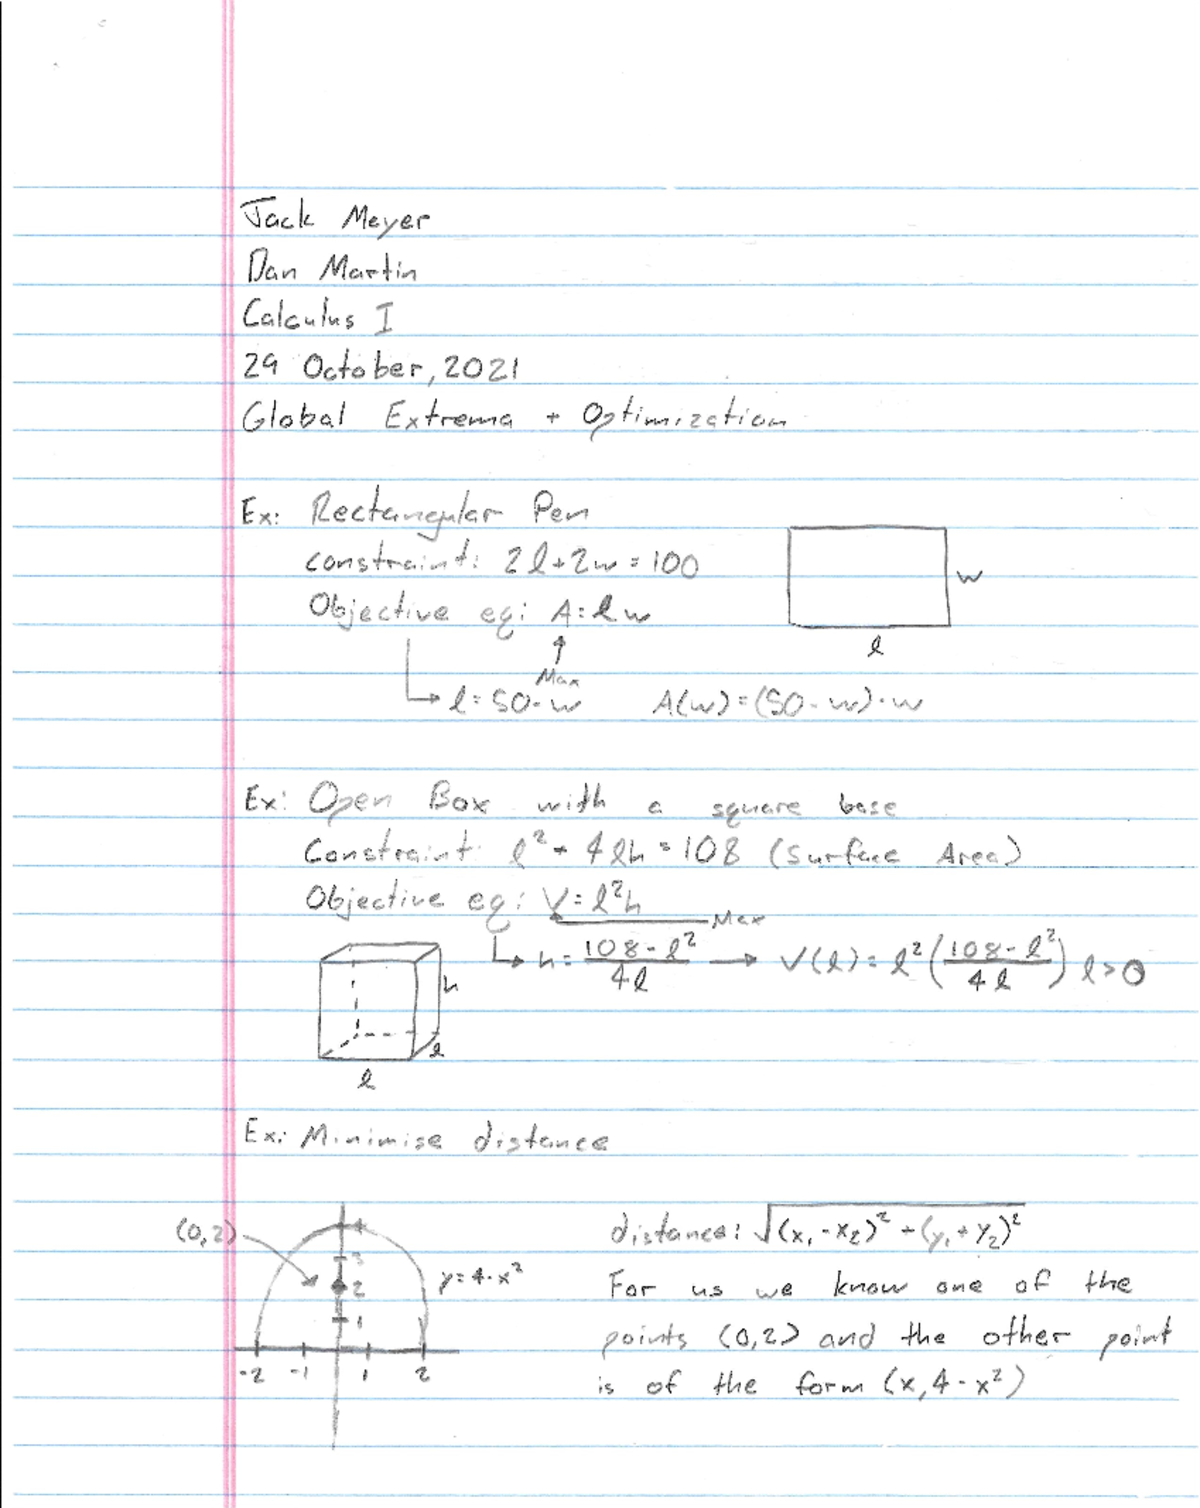 Jack Meyer
Dan Martin
Calculus I
29 October, 2021
Global Extrema + Optimization
Ex: Rectangular Pen
constraint: 2l+2w=100
Objective eq: A=lw
w
l
Max
l=50-w A(w)=(50-w)·w
Ex: Open Box with a square base
Constraint: l²+4lh=108 (Surface Area)
Objective eq: V=l²h
Max
h=(108-l²)/(4l) → V(l)=l²((108-l²)/(4l)) l>0
h
l
l
Ex: Minimise distance
(0,2)
4
3
2
1
-2 -1 1 2
y=4-x²
distance: √((x₁-x₂)²+(y₁+y₂)²
For us we know one of the
points (0,2) and the other point
is of the form (x,4-x²)